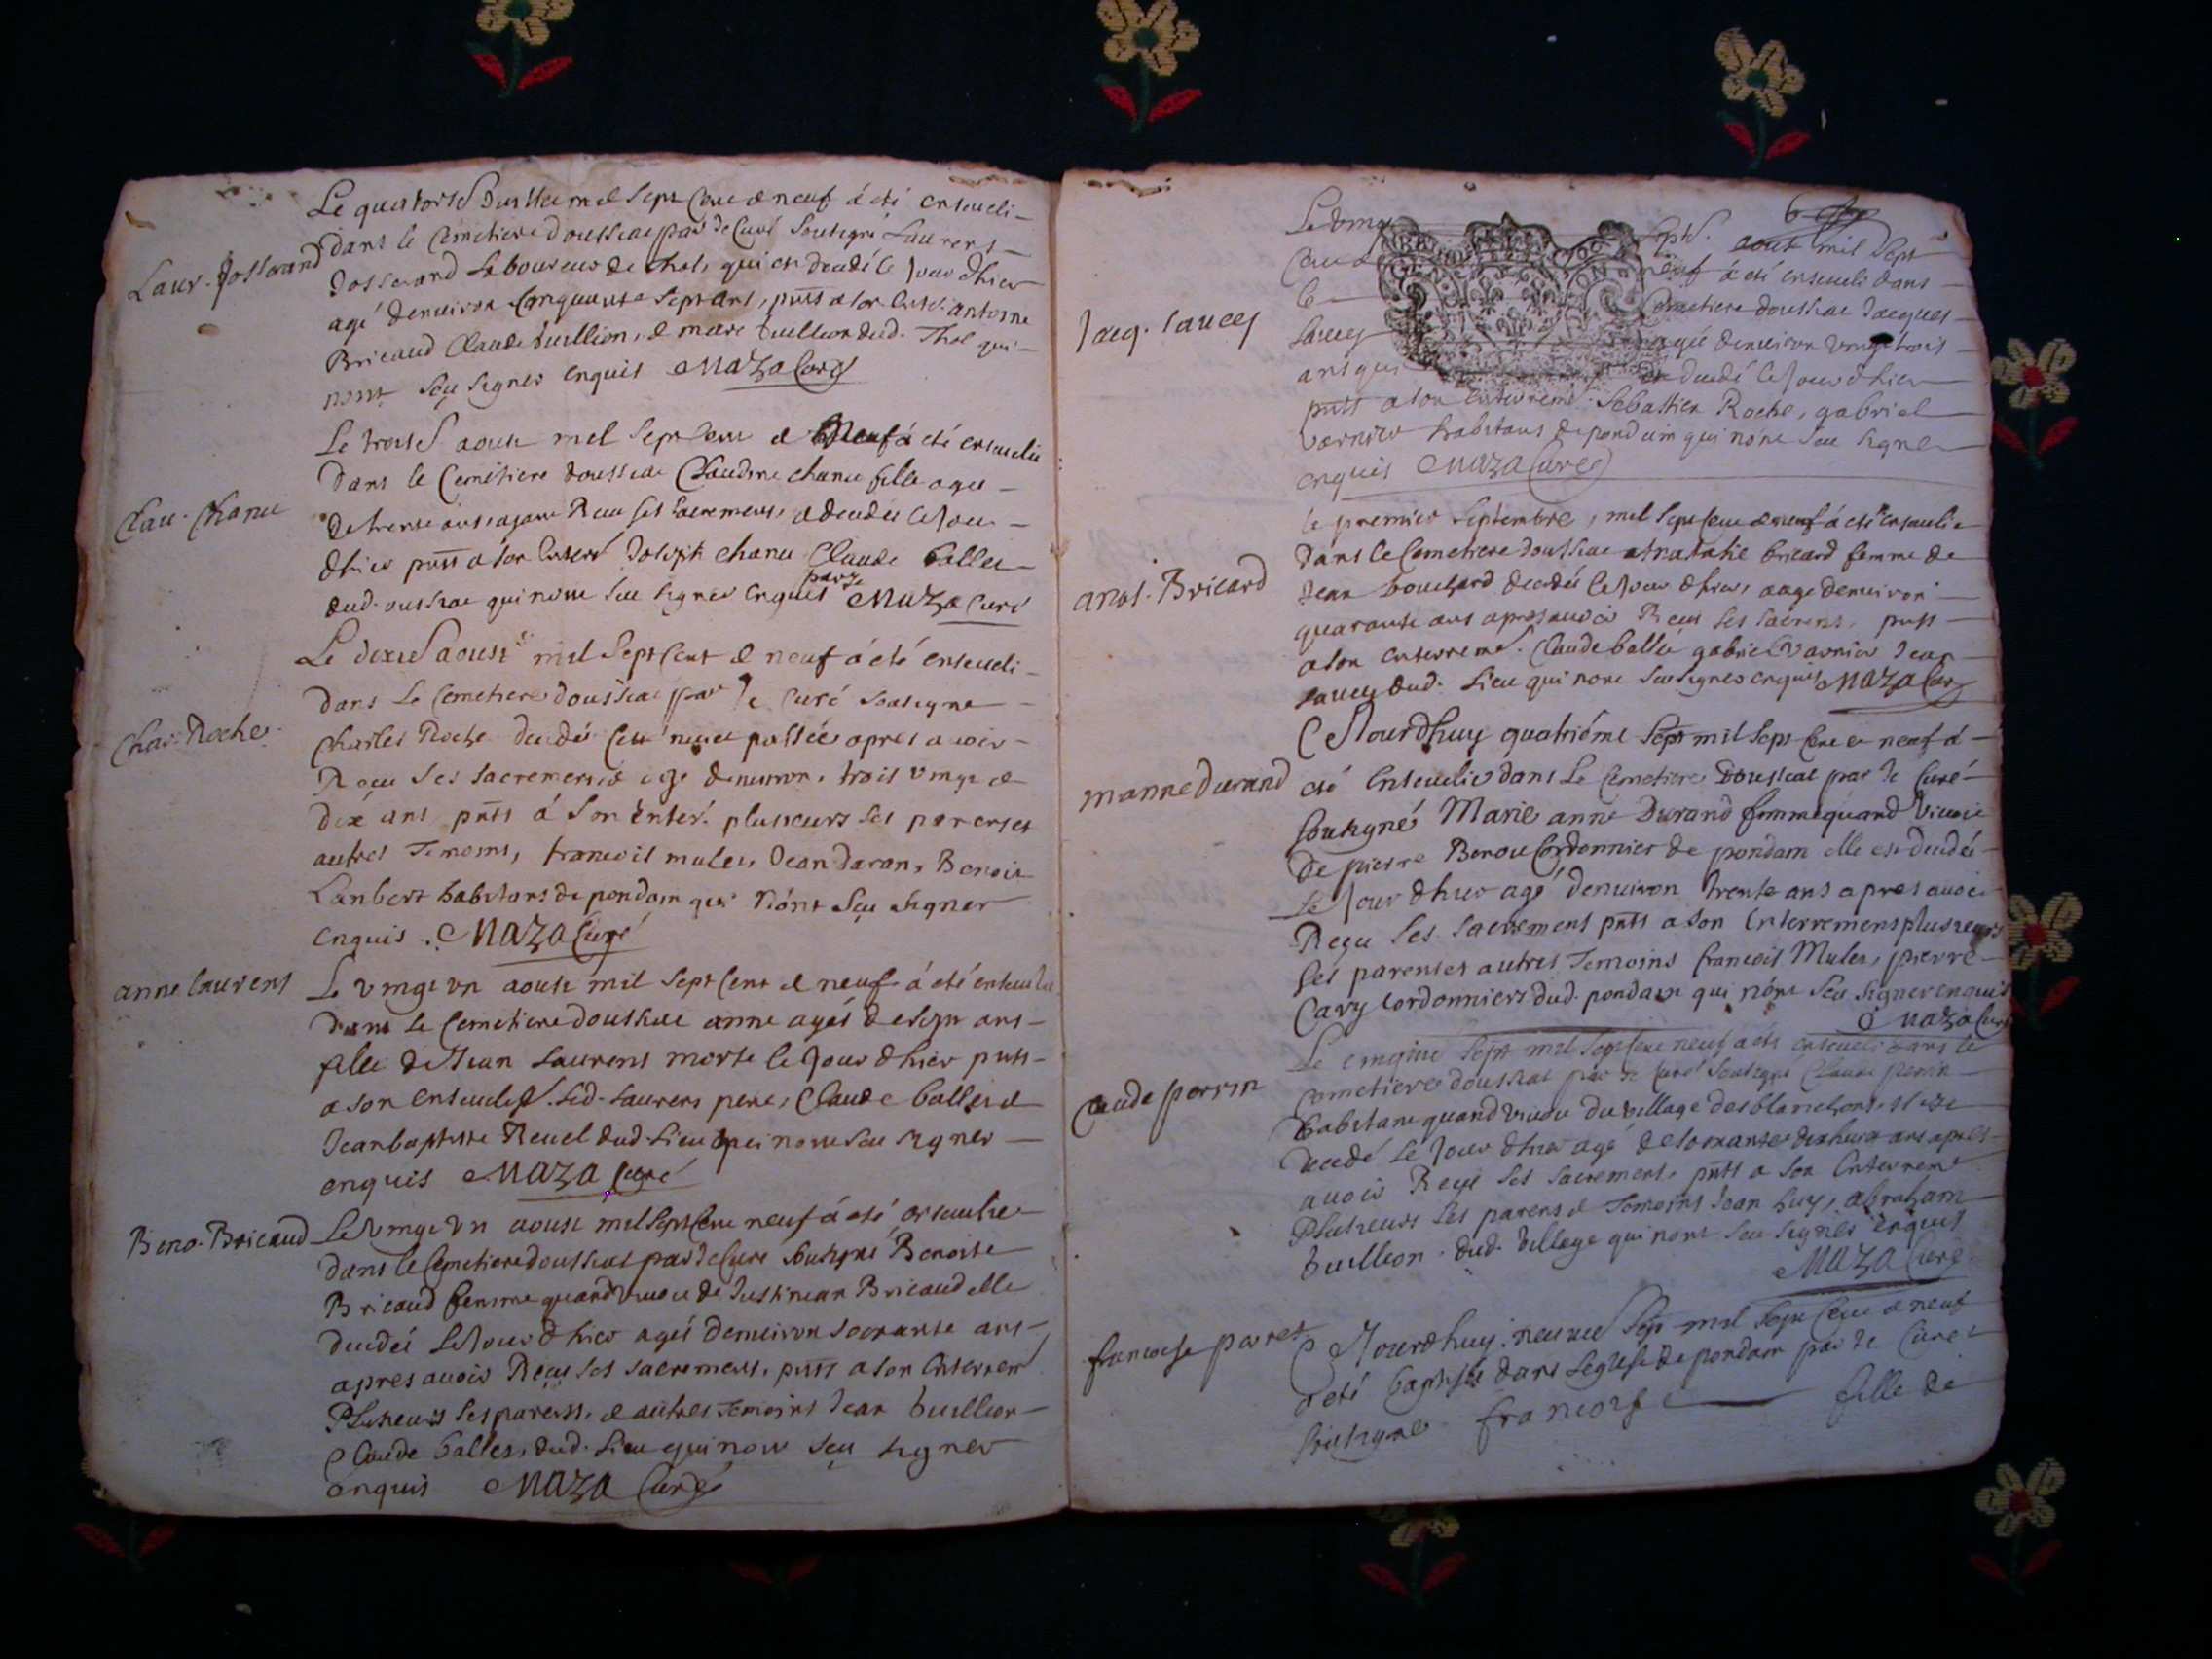 Laur. Josserand
Le quatorse Juillet mil sept cent et neuf á eté enseveli
dans le cemetiere doussiat par le Curé soubsigné Laurens
Josserand laboureur de thol, qui est decedé le Jour dhier
agé denviron cinquante sept ans, pnts a son enter. antoine
Bricaud Claude vuillion, et vuillion dud. Thol qui
nont sçu signer enquis MAZA Curé
Clau. Chanu
Le aoust mil sept cent et neuf á eté ensevelie
dans le Cemetiere doussiat Claudine chanu fille agée
de trente ans ayant Receu ses sacremens, et decedée le Jour
dhier pnts a son enterré Joseph chanu Claude balles
dud. oussiat qui nont sceu signer enquis MAZA Curé
Char. Roche
Le aoust mil sept Cent et neuf á eté enseveli
dans le Cemetiere doussiat par le Curé sousigne
Charles Roche decedé passée apres avoir
Receu ses sacremens agé denviron trois vingt et
dix ans pnts á son enter. plusieurs ses parens et
autres Temoins, francois mulet, Jean daran, Benoit
Lanbert habitans de pondain qui nónt sçu signer
enquis. MAZA Curé
anne laurens
Le vingt vn aoust mil sept Cent et neuf á eté ensevelie
dans le Cemetiere doussiat anne agés de sept ans
fille de Jean Laurens morte le Jour dhier pnts
a son led. Laurens pere, Claude balles et
Jean baptiste Revel dud. lieu qui nont sceu signer
enquis MAZA Curé
Beno. Bricaud
Le vingt vn aoust mil sept Cent neuf á eté ensevelie
dans le Cemetiere doussiat par le Curé sousigné Benoite
Bricaud femme quand vivoit de Bricaud elle
decedée le Jour dhier agée denviron soixante ans
apres avoir Reçeu ses sacremens, pnts a son enterrem
Plusieurs ses parens, et autres Temoins Jean vuillion
Claude balles, dud. lieu qui nont sçu signer
enquis MAZA Curé
Jacq. saucey
6
Le vingt sept aout mil sept
Cent neuf á eté enseveli dans
le Cemetiere doussiat Jacques
saucey agé denviron vingt trois
ans qui est decedé le Jour dhier
pnts a son enterrement Sebastien Roche, gabriel
varnier habitans de pondain qui nont sceu signer
enquis MAZA Curé
anat. Bricard
le premier septembre, mil sept cent et neuf á eté ensevelie
dans le Cemetiere doussiat bricard femme de
Jean bouchard decedée le Jour dhier, aage denviron
quarante ans apres avoir Receu ses sacrens, pnts
a son enterremt. Claude ballès gabriel varnier Jean
saucey dud. lieu qui nont sceu signer enquis MAZA Curé
m anne durand
Cejourdhuy quatriéme sept mil sept cent et neuf á
eté ensevelie dans le Cemetiere doussiat par le Curé
sousigné Marie anne Durand femme quand vivoit
de pierre Cordonnier de pondain elle est decedée
le Jour dhier agé denviron trente ans apres avoir
Reçu ses sacremens pnts a son enterremens plusieurs
ses parens et autres Temoins francois Mulet, pierre
Cavy Cordonniers dud. pondain qui nónt sceu signer enquis
MAZA Curé
claude perrin
Le cinqme sept mil sept cent neuf a eté enseveli dans le
cemetiere doussiat par le Curé sousigné Claude perrin
habitant quand vivoit du village des blanchons
decedé le Jour dhier agé de soixante dixhuit ans apres
avoir Reçu ses sacremens, pnts a son enterremt
Plusieurs ses parens et Temoins Jean abraham
vuillion dud. village qui nont sceu signer enquis
MAZA Curé
francoise
Cejourdhuy neuvie sept mil sept Cent et neuf
a eté baptisée dans leglise de pondain par le Curé
sousigné francoise fille de